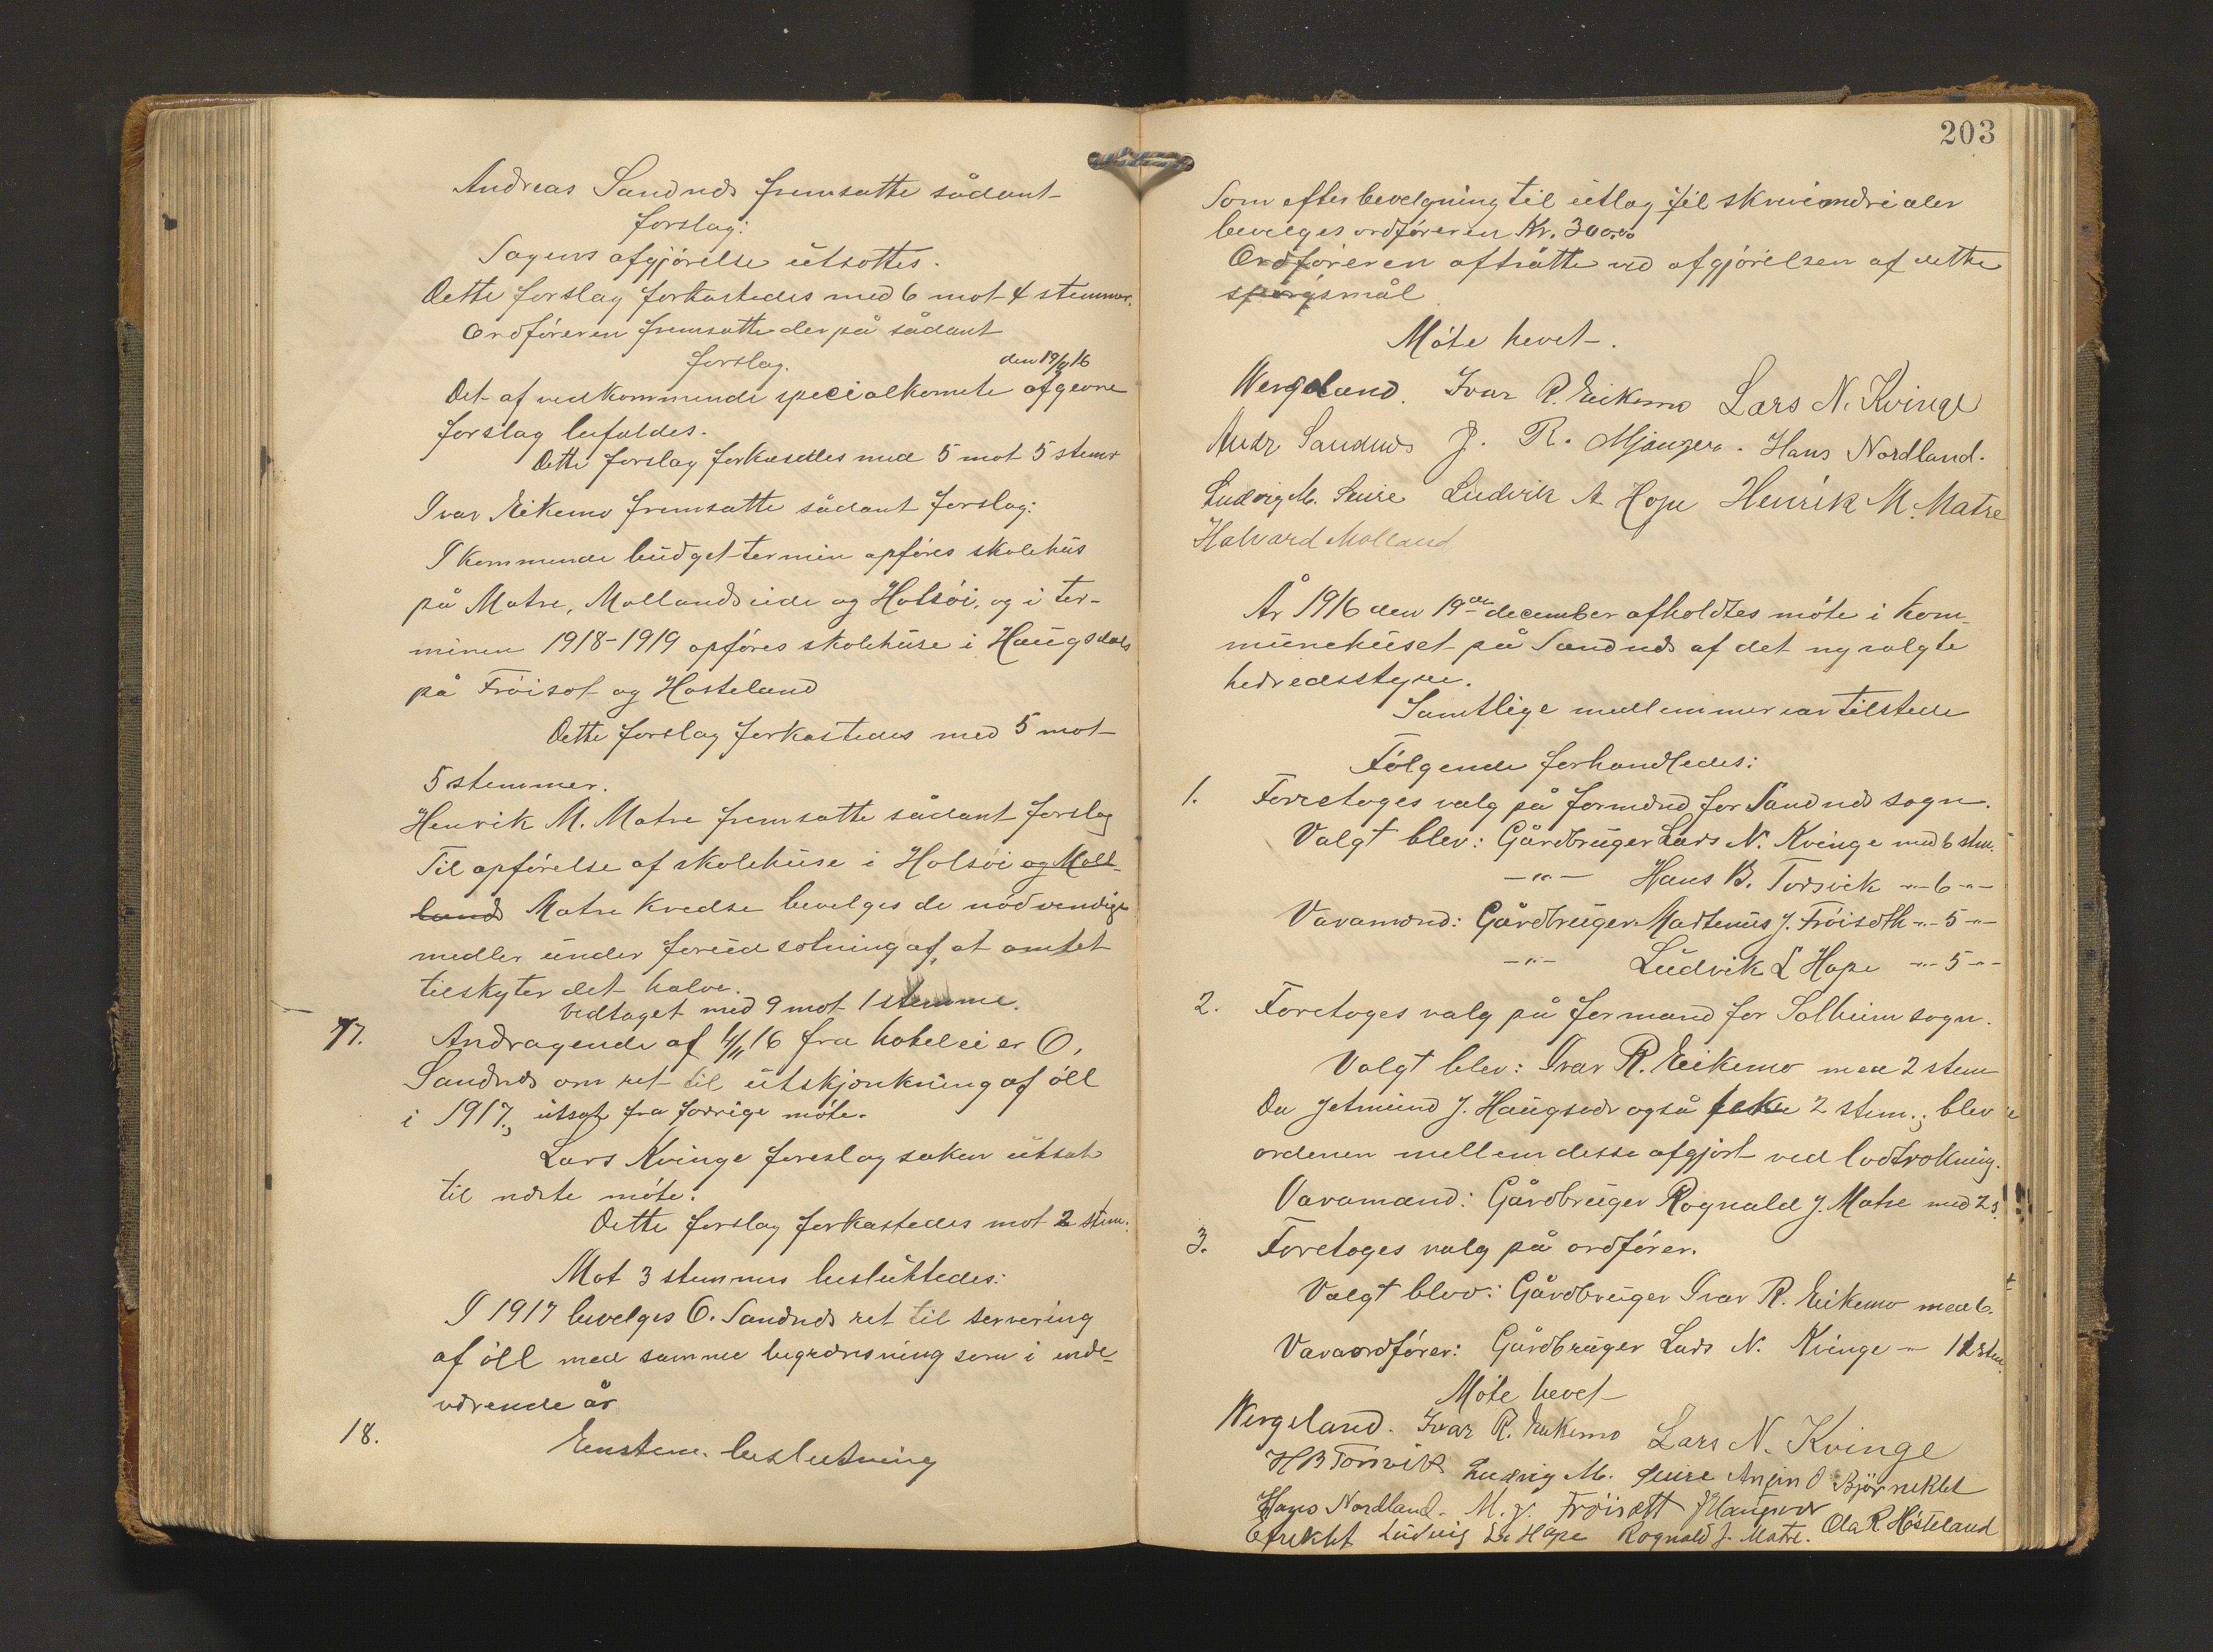 Andreas Sandnæs fremsatte sådant
forslag:
Sagens afgjörelse utsættes.
Dette forslag forkastedes med 6 mot 4 stemmer.
Ordföreren fremsatte derpå sådant
forslag.
den 19/9 16
Det af vedkommende specialkomite afgevne
forslag bifaldes.
Dette forslag forkastedes med 5 mot 5 stemr
Ivar Eikemo fremsatte sådant forslag:
I kommende budget-termin opföres skolehus
på Matre, Mollandseide og Holsöi, og i ter-
minen 1918-1919 opföres skolehuse i Haugsdal
på Fröiset og Hosteland
Dette forslag forkastedes med 5 mot
5 stemmer.
Henrik M. Matre fremsatte sådant forslag
Til opförelse af skolehuse i Holsöi og Moll-
lands Matre kredse bevelges de nödvendige
midler under forudsætning af, at amtet
tilskyter det halve.
Vedtaget med 9 mot 1 stemme.
17. Andragende af 4/11 16 fra hoteleier O.
Sandnæs om ret til utskjænkning af öll
i 1917, utsat fra forrige möte.
Lars Kvinge foreslag saken utsat
til næste möte.
Dette forslag forkastedes mot 2 stem.
Mot 3 stemmer besluttedes:
I 1917 bevelges O. Sandnæs ret til servering
af öll med samme begrænsning som i inde-
værende år
18. Enstem. beslutning
203
Som efterbevelgning til utlag til skrivematerialer
bevilges ordföreren Kr. 300,00
Ordföreren aftrådte ved afgjörelsen af dette
spörgsmål
Möte hevet.
Wergeland. Ivar R. Eikemo Lars N. Kvinge
Andr Sandnæs J. R. Mjanger. Hans Nordland.
Ludvig M. Ludvik A Hope Henrik M. Matre
Halvard Molland
År 1916 den 19de december afholdtes möte i kom-
munehuset på Sandnæs af det nyvalgte
heredsstyre.
Samtlige medlemmer var tilstede
Fölgende forhandledes:
1. Foretoges valg på formænd for Sandnæs sogn.
Valgt blev: Gårdbruger Lars N. Kvinge med 6 stem.
-"- Hans B. Torsvik -"- 6 -"-
Varamænd: Gårdbruger Martenus J. Fröiseth -"- 5 -"-
-"- Ludvik L Hope -"- 5 -"-
2. Foretoges valg på formand for Solheim sogn.
Valgt blev: Ivar R. Eikemo med 2 stem
Da Jetmund J. Haugsvær også fekk 2 stem.; blev
ordenen mellem desse afgjort ved lodtrækning.
Varamand: Gårdbruger Rognald J. Matre med 2 s.
3. Foretoges valg på ordförer.
Valgt blev: Gårdbruger Ivar R. Eikemo med 6.
Varaordförer: Gårdbruger Lars N. Kvinge -"- 12 stem
Möte hevet
Wergeland. Ivar R. Eikemo Lars N. Kvinge
H B Torsvik Ludvig M. O Björneklet
Hans Nordland. M. J. Fröisett J Haugsvær
Ludvig L. Hope Rognald J. Matre. Ola R. Hosteland